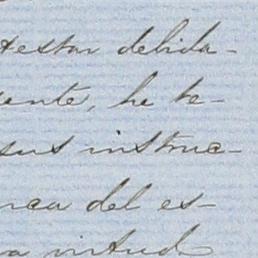 testar debida-
ente, he te-
sus instruc-
rca del es-
a intud